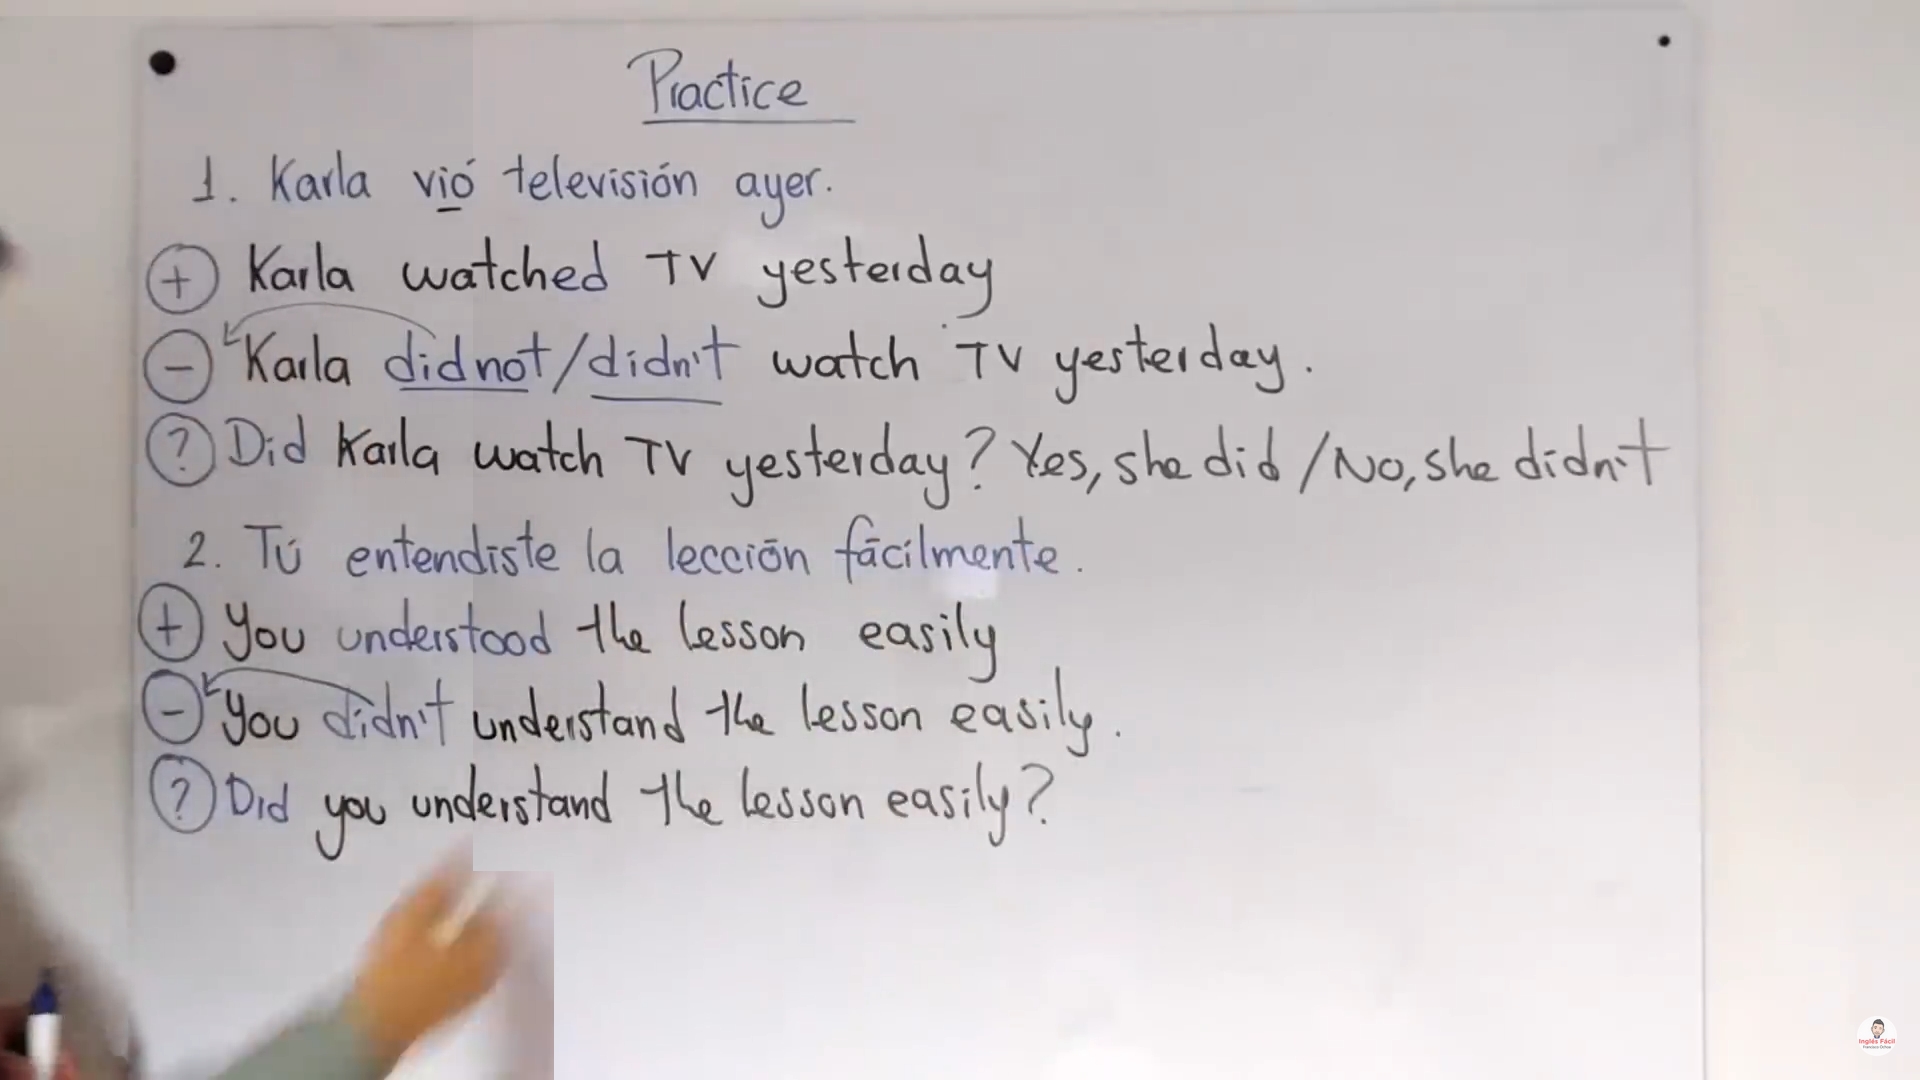 Practice
1. Karla vió televisión ayer.
+ Karla watched TV yesterday
- Karla did not/didn't watch TV yesterday.
? Did Karla watch TV yesterday? Yes, she did / No, she didn't
2. Tú entendiste la lección fácilmente.
+ You understood the lesson easily
- You didn't understand the lesson easily.
? Did you understand the lesson easily?
Inglés Fácil